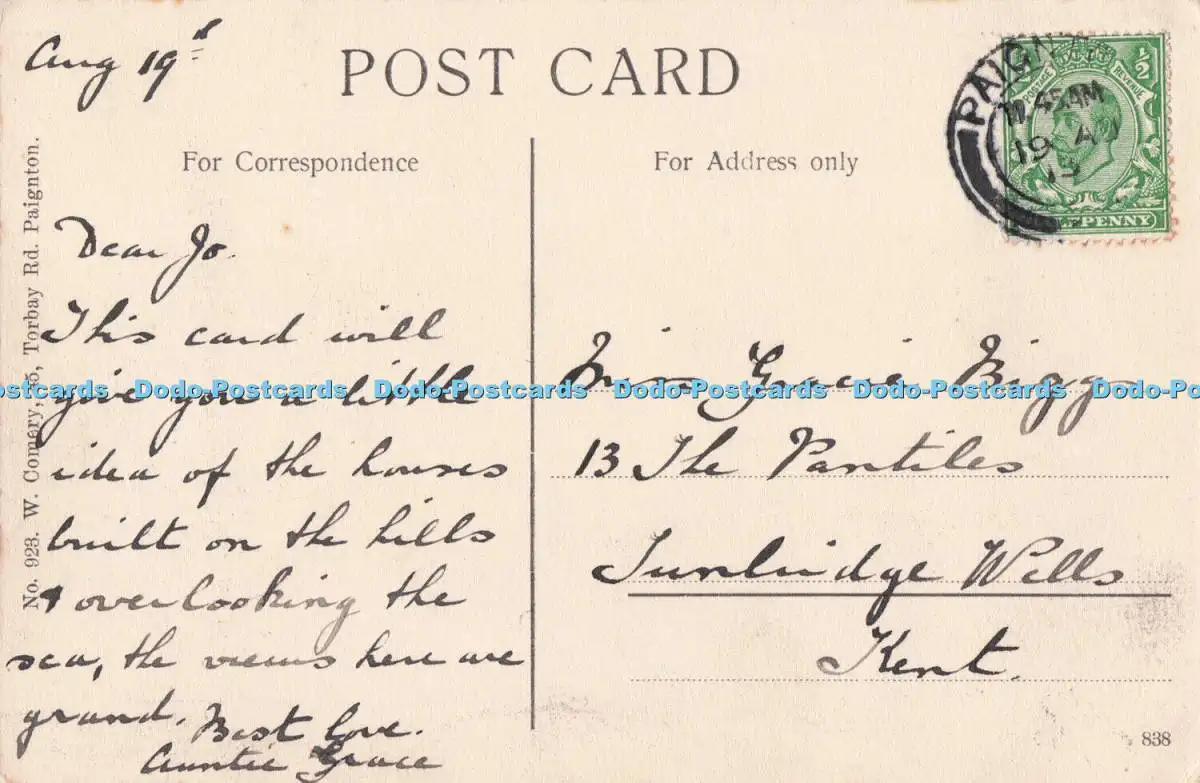 Aug 19th
POST CARD
For Correspondence
For Address only
PAIGNT
11.45AM
19 AU
13
POSTAGE
REVENUE
1/2
PENNY
No. 923. W. Comary, 35, Torbay Rd. Paignton.
Dear Jo.
This card will
give you a little
idea of the houses
built on the hills
& overlooking the
sea, the views here are
grand.
Best love.
Auntie Grace
Miss Gracie Biggs
13 The Pantiles
Tunbridge Wells
Kent.
838
Postcards Dodo-Postcards Dodo-Postcards Dodo-Postcards Dodo-Postcards Dodo-Po